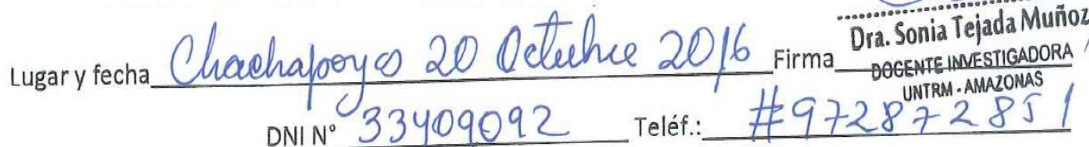 Lugar y fecha Chachapoyas 20 Octubre 2016 Firma Dra. Sonia Tejada Muñoz
DOCENTE INVESTIGADORA
UNTRM - AMAZONAS
DNI N° 33409092 Teléf.: #972872851